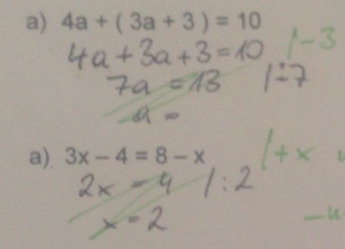 a) 4a + ( 3a + 3 ) = 10
4a + 3a + 3 = 10 |-3
7a = 13 |÷7
a =
a) 3x – 4 = 8 – x |+x
2x = 4 |:2
x = 2